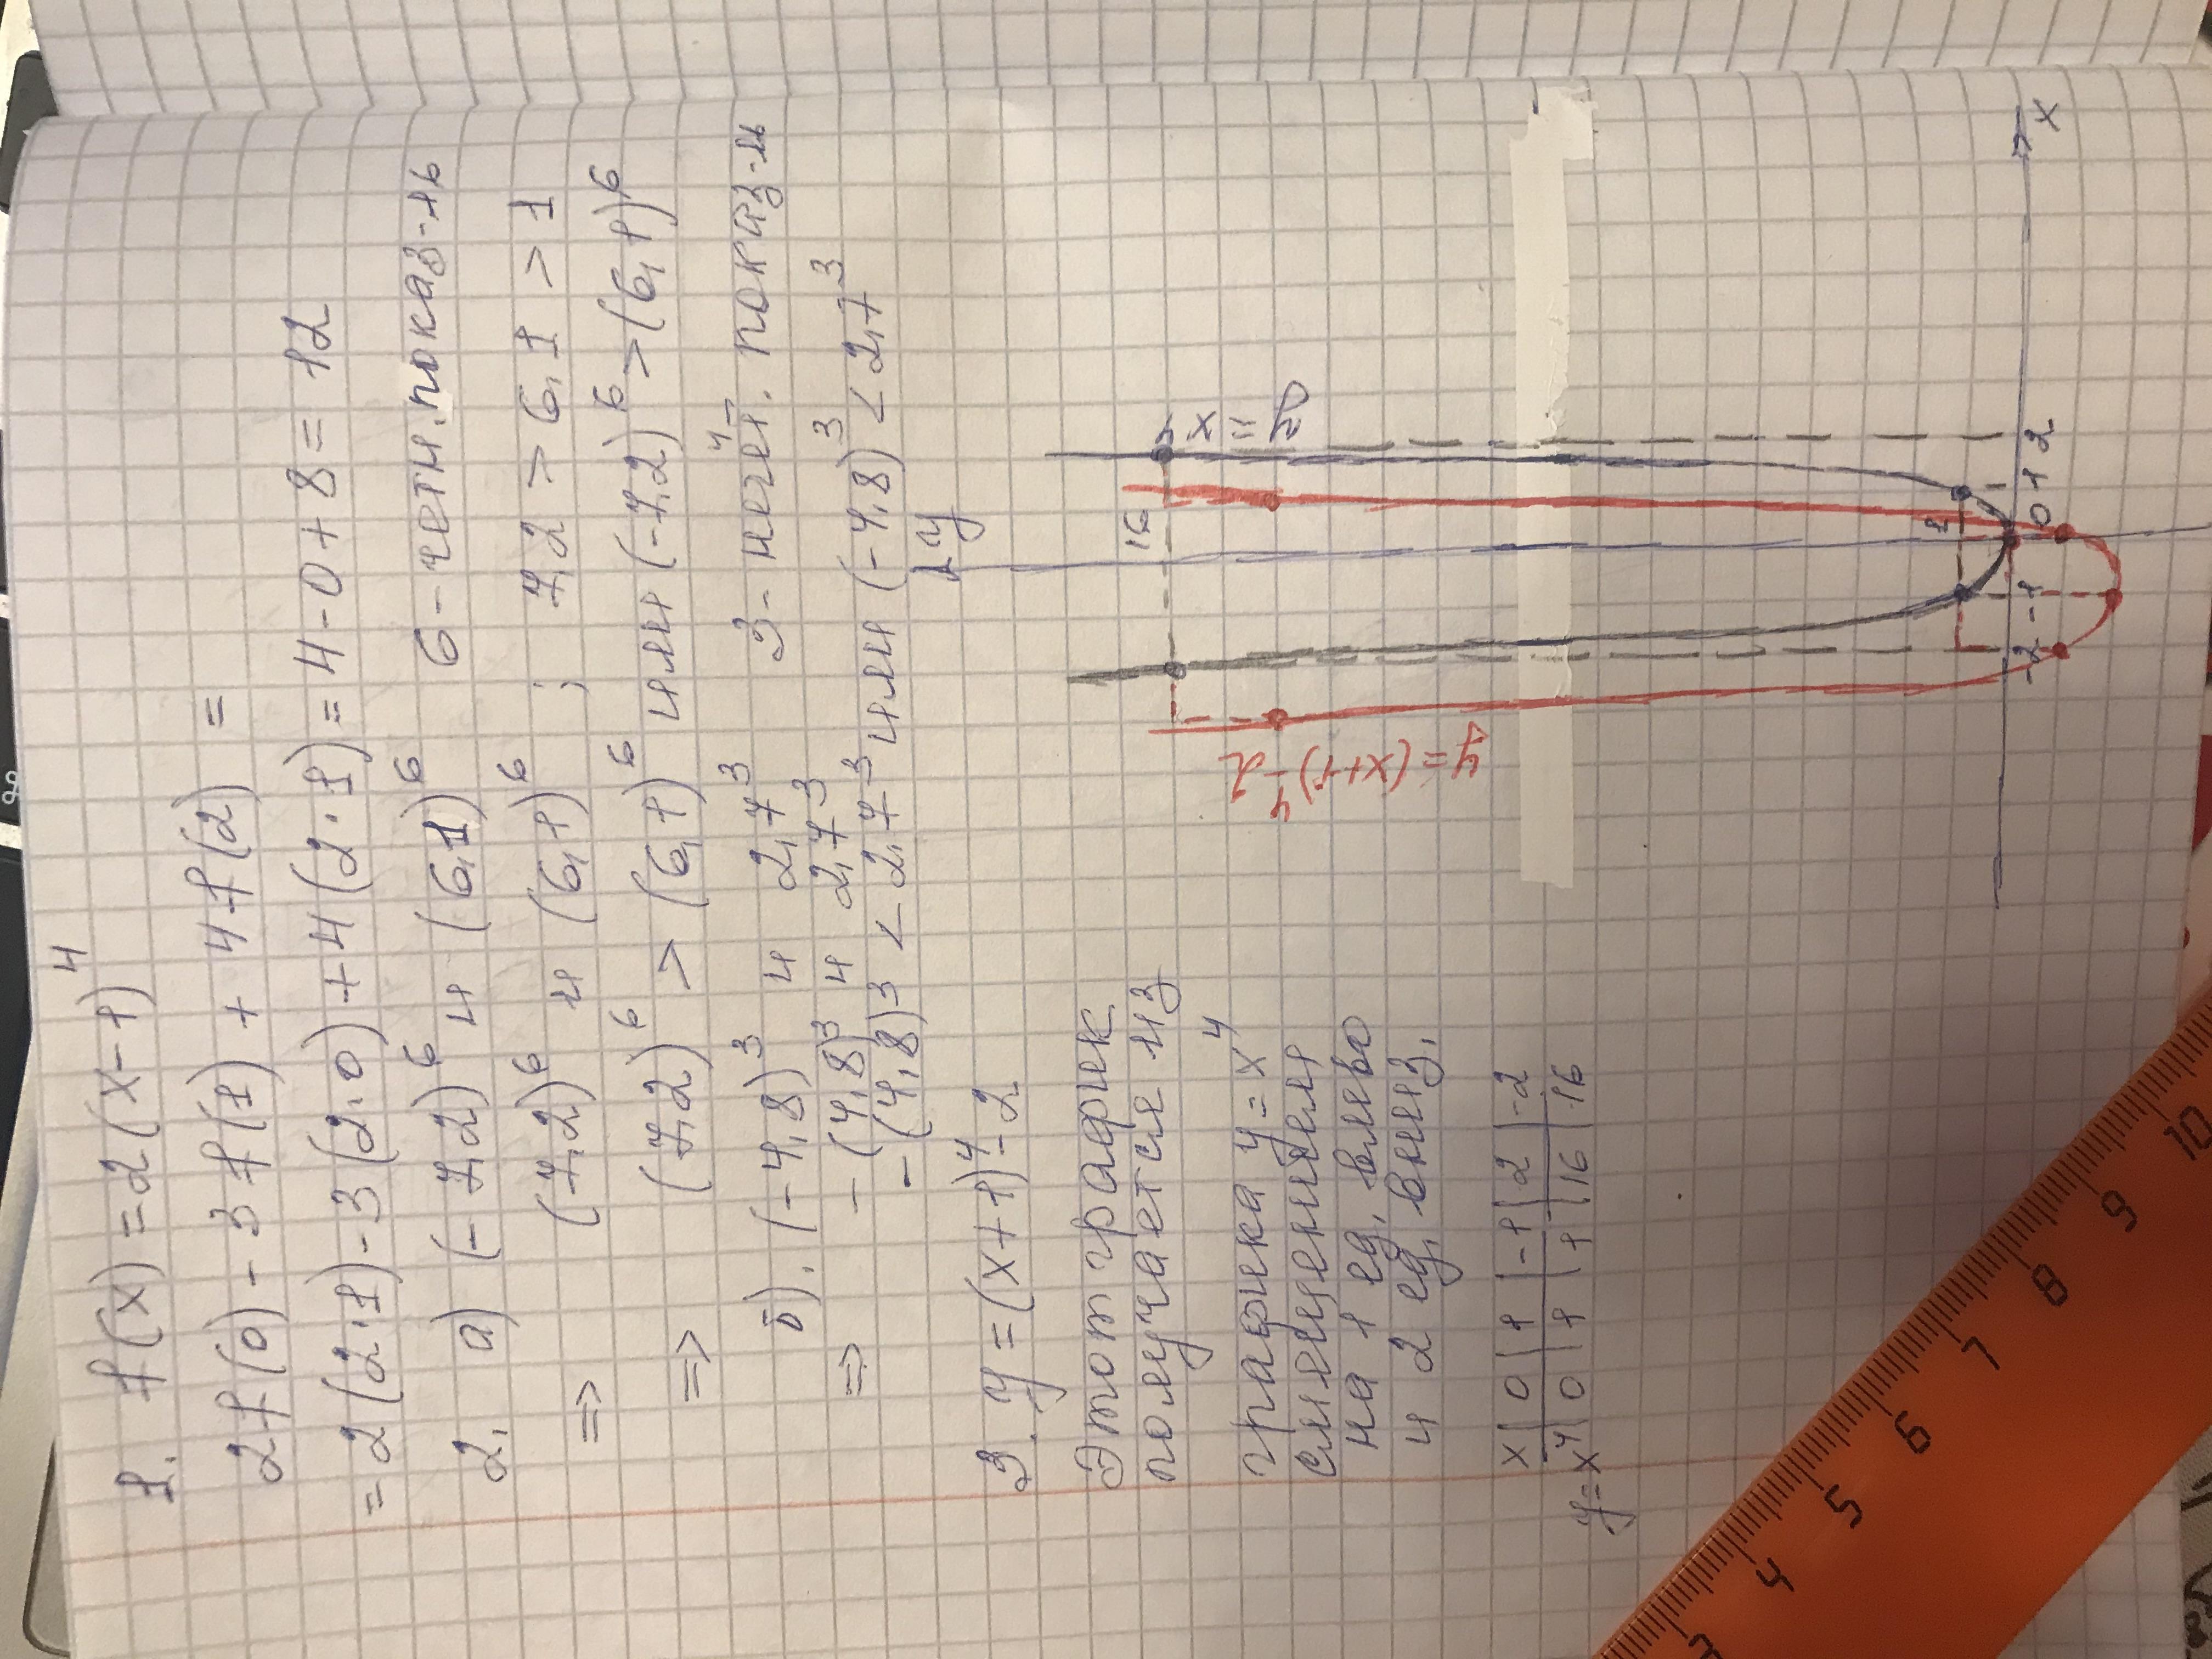 1. f(x)=2(x-1)⁴
2f(0)-3f(1)+4f(2)=
=2(2·1)-3(2·0)+4(2·1)=4-0+8=12
2. а) (-7,2)⁶ и (6,1)⁶ 6-четн. показ-ль
=> (7,2)⁶ и (6,1)⁶; 7,2>6,1>1
=> (7,2)⁶ > (6,1)⁶ или (-7,2)⁶>(6,1)⁶
б). (-4,8)³ и 2,7³ 3-нечет. показ-ль
=> -(4,8)³ и 2,7³
-(4,8)³ < 2,7³ или (-4,8)³<2,7³
3. y=(x+1)⁴-2
Этот график
получается из
графика y=x⁴
смещения
на 1 ед. влево
и 2 ед. вниз.
x 0 1 -1 2 -2
y=x⁴ 0 1 1 16 16
y
16
1
-2 -1 0 1 2
x
y=(x+1)⁴-2